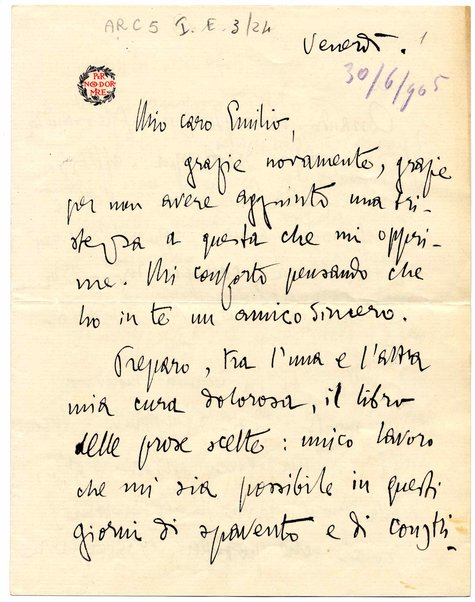 ARC 5 I. E. 3/24
Venerdì.
1
30/6/905
PER
NON DOR
MIRE
Mio caro Emilio,
grazie novamente, grazie
per non avere aggiunto una tri-
stezza a questa che mi oppri-
me. Mi conforto pensando che
ho in te un amico sincero.
Preparo, tra l'una e l'altra
mia cura dolorosa, il libro
delle prose scelte: unico lavoro
che mi sia possibile in questi
giorni di spavento e di